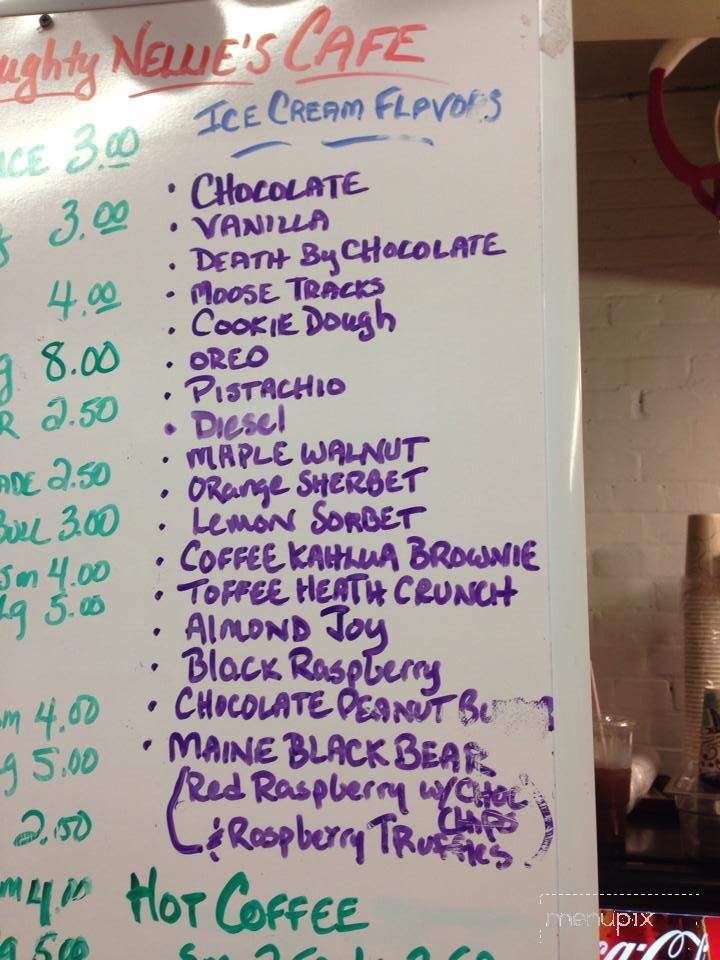 ughty NELLIE'S CAFE
ICE CREAM FLAVORS
3.00
• CHOCOLATE
3.00
• VANILLA
• DEATH By CHOCOLATE
4.00
• MOOSE TRACKS
• COOKIE Dough
8.00
• OREO
• PISTACHIO
2.50
• Diesel
• MAPLE WALNUT
ADE 2.50
• ORange SHERBET
3.00
• Lemon SORBET
Sm 4.00
• COFFEE KAHLUA BROWNIE
Lg 5.00
• TOFFEE HEATH CRUNCH
• ALMOND Joy
• Black Raspberry
4.00
• CHOCOLATE PEANUT Bu
5.00
• MAINE BLACK BEAR
(Red Raspberry w/CHOC
CHIPS
2.50
& Raspberry TRuffles)
HOT COFFEE
5.00
menupix